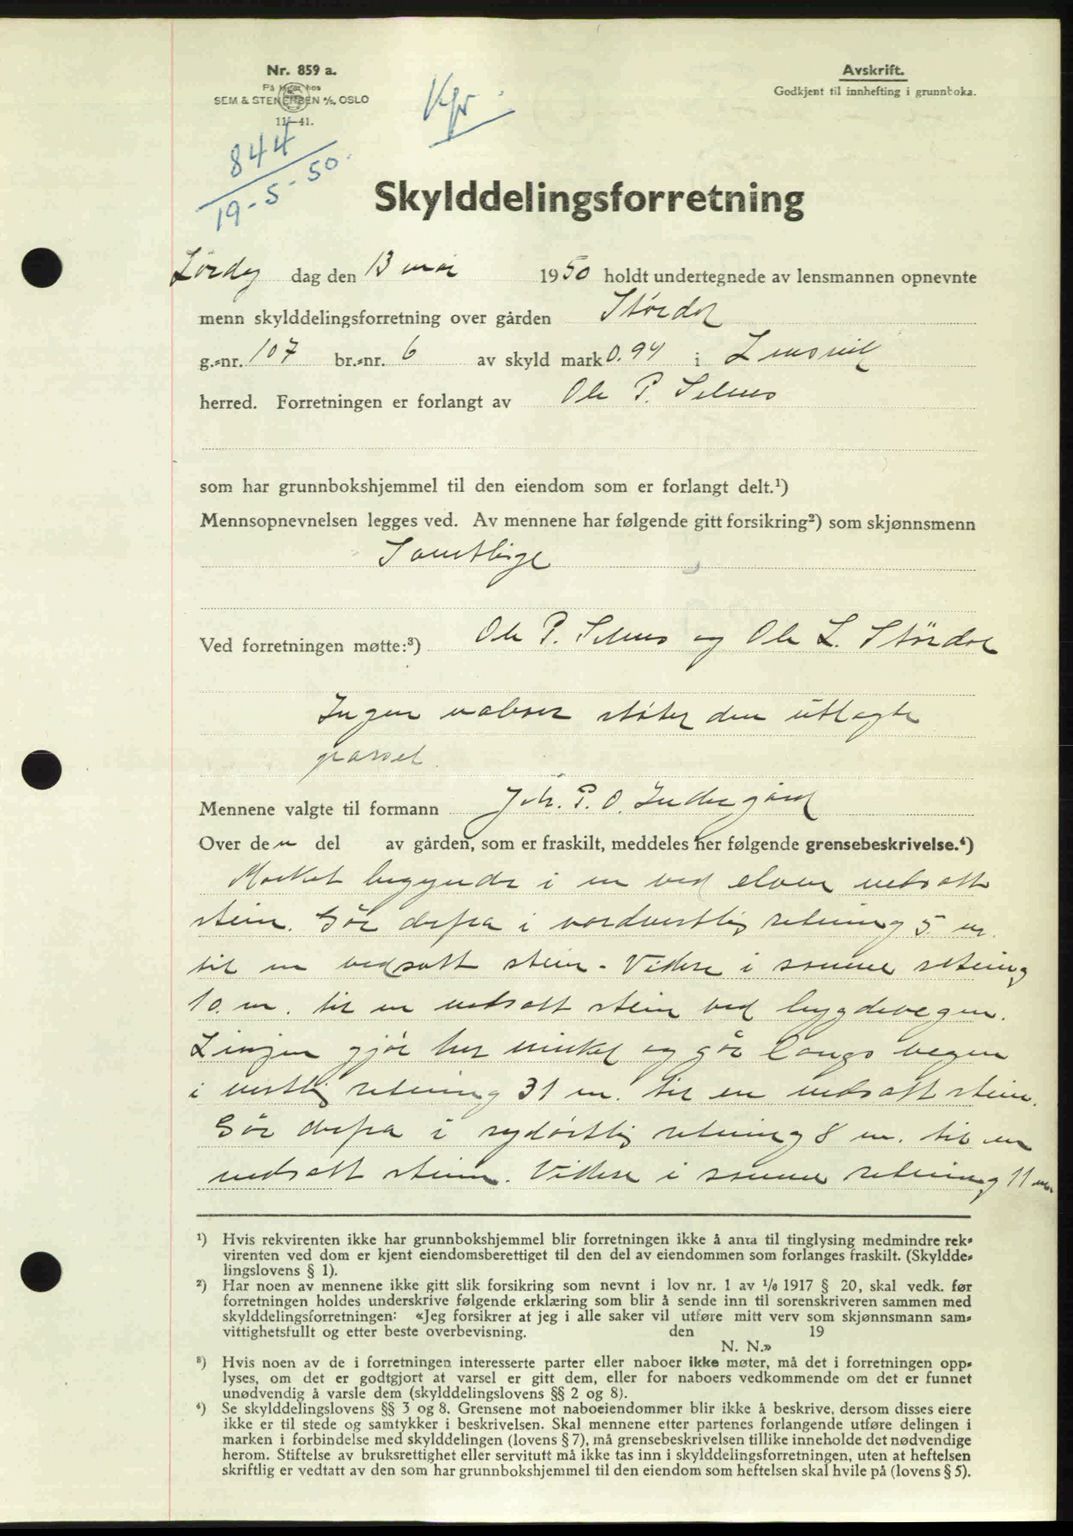 Nr. 859 a.
På lager hos
SEM & STENERSEN A/S, OSLO
11-41.
Avskrift.
Godkjent til innhefting i grunnboka.
Kfr.
844
19-5-50.
Skylddelingsforretning
Lørdag dag den 13 mai 1950 holdt undertegnede av lensmannen opnevnte
menn skylddelingsforretning over gården Størdal
g.-nr. 107 br.-nr. 6 av skyld mark 0.94 i Lensvik
herred. Forretningen er forlangt av Ole P. Selnes
som har grunnbokshjemmel til den eiendom som er forlangt delt.¹)
Mennsopnevnelsen legges ved. Av mennene har følgende gitt forsikring²) som skjønnsmenn
Samtlige
Ved forretningen møtte:³) Ole P. Selnes og Ole L. Størdal
Ingen naboer støter den utlagte
parsel.
Mennene valgte til formann Joh. P. O. Indergård
Over den del av gården, som er fraskilt, meddeles her følgende grensebeskrivelse.⁴)
Merket begynder i en ved elven nedsatt
stein. Går derfra i nordvestlig retning 5 m.
til en nedsatt stein. Videre i samme retning
10 m. til en nedsatt stein ved bygdevegen.
Linjen gjør her vinkel og går langs vegen
i vestlig retning 31 m. til en nedsatt stein.
Går derfra i sydøstlig retning 8 m. til en
nedsatt stein. Videre i samme retning 11 m.
¹) Hvis rekvirenten ikke har grunnbokshjemmel blir forretningen ikke å anta til tinglysing medmindre rek-
virenten ved dom er kjent eiendomsberettiget til den del av eiendommen som forlanges fraskilt. (Skyldde-
lingslovens § 1).
²) Har noen av mennene ikke gitt slik forsikring som nevnt i lov nr. 1 av 1/6 1917 § 20, skal vedk. før
forretningen holdes underskrive følgende erklæring som blir å sende inn til sorenskriveren sammen med
skylddelingsforretningen: «Jeg forsikrer at jeg i alle saker vil utføre mitt verv som skjønnsmann sam-
vittighetsfullt og etter beste overbevisning. den 19
N. N.»
³) Hvis noen av de i forretningen interesserte parter eller naboer ikke møter, må det i forretningen opp-
lyses, om det er godtgjort at varsel er gitt dem, eller for naboers vedkommende om det er funnet
unødvendig å varsle dem (skylddelingslovens §§ 2 og 8).
⁴) Se skylddelingslovens §§ 3 og 8. Grensene mot naboeiendommer blir ikke å beskrive, dersom disses eiere
ikke er til stede og samtykker i beskrivelsen. Skal mennene etter partenes forlangende utføre delingen i
marken i forbindelse med skylddelingen (lovens § 7), må grensebeskrivelsen tillike inneholde det nødvendige
herom. Stiftelse av bruksrettighet eller servitutt må ikke tas inn i skylddelingsforretningen, uten at heftelsen
skriftlig er vedtatt av den som har grunnbokshjemmel til den eiendom som heftelsen skal hvile på (lovens § 5).